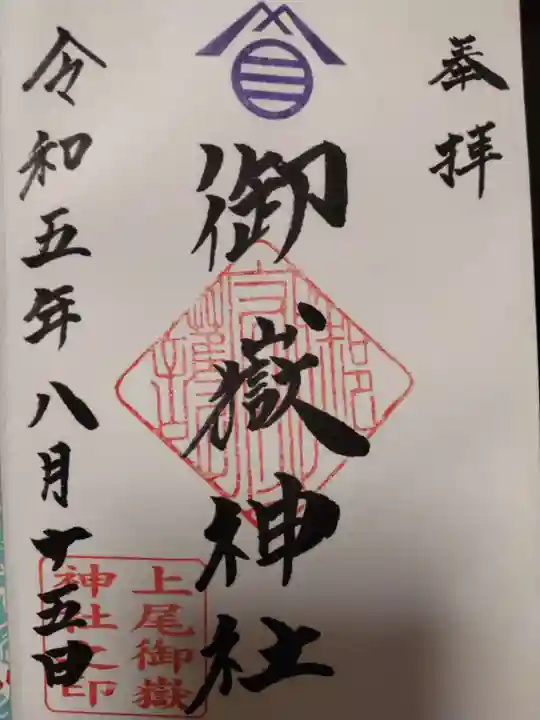 奉拝
御嶽神社
令和五年八月十五日
上尾御嶽
神社之印